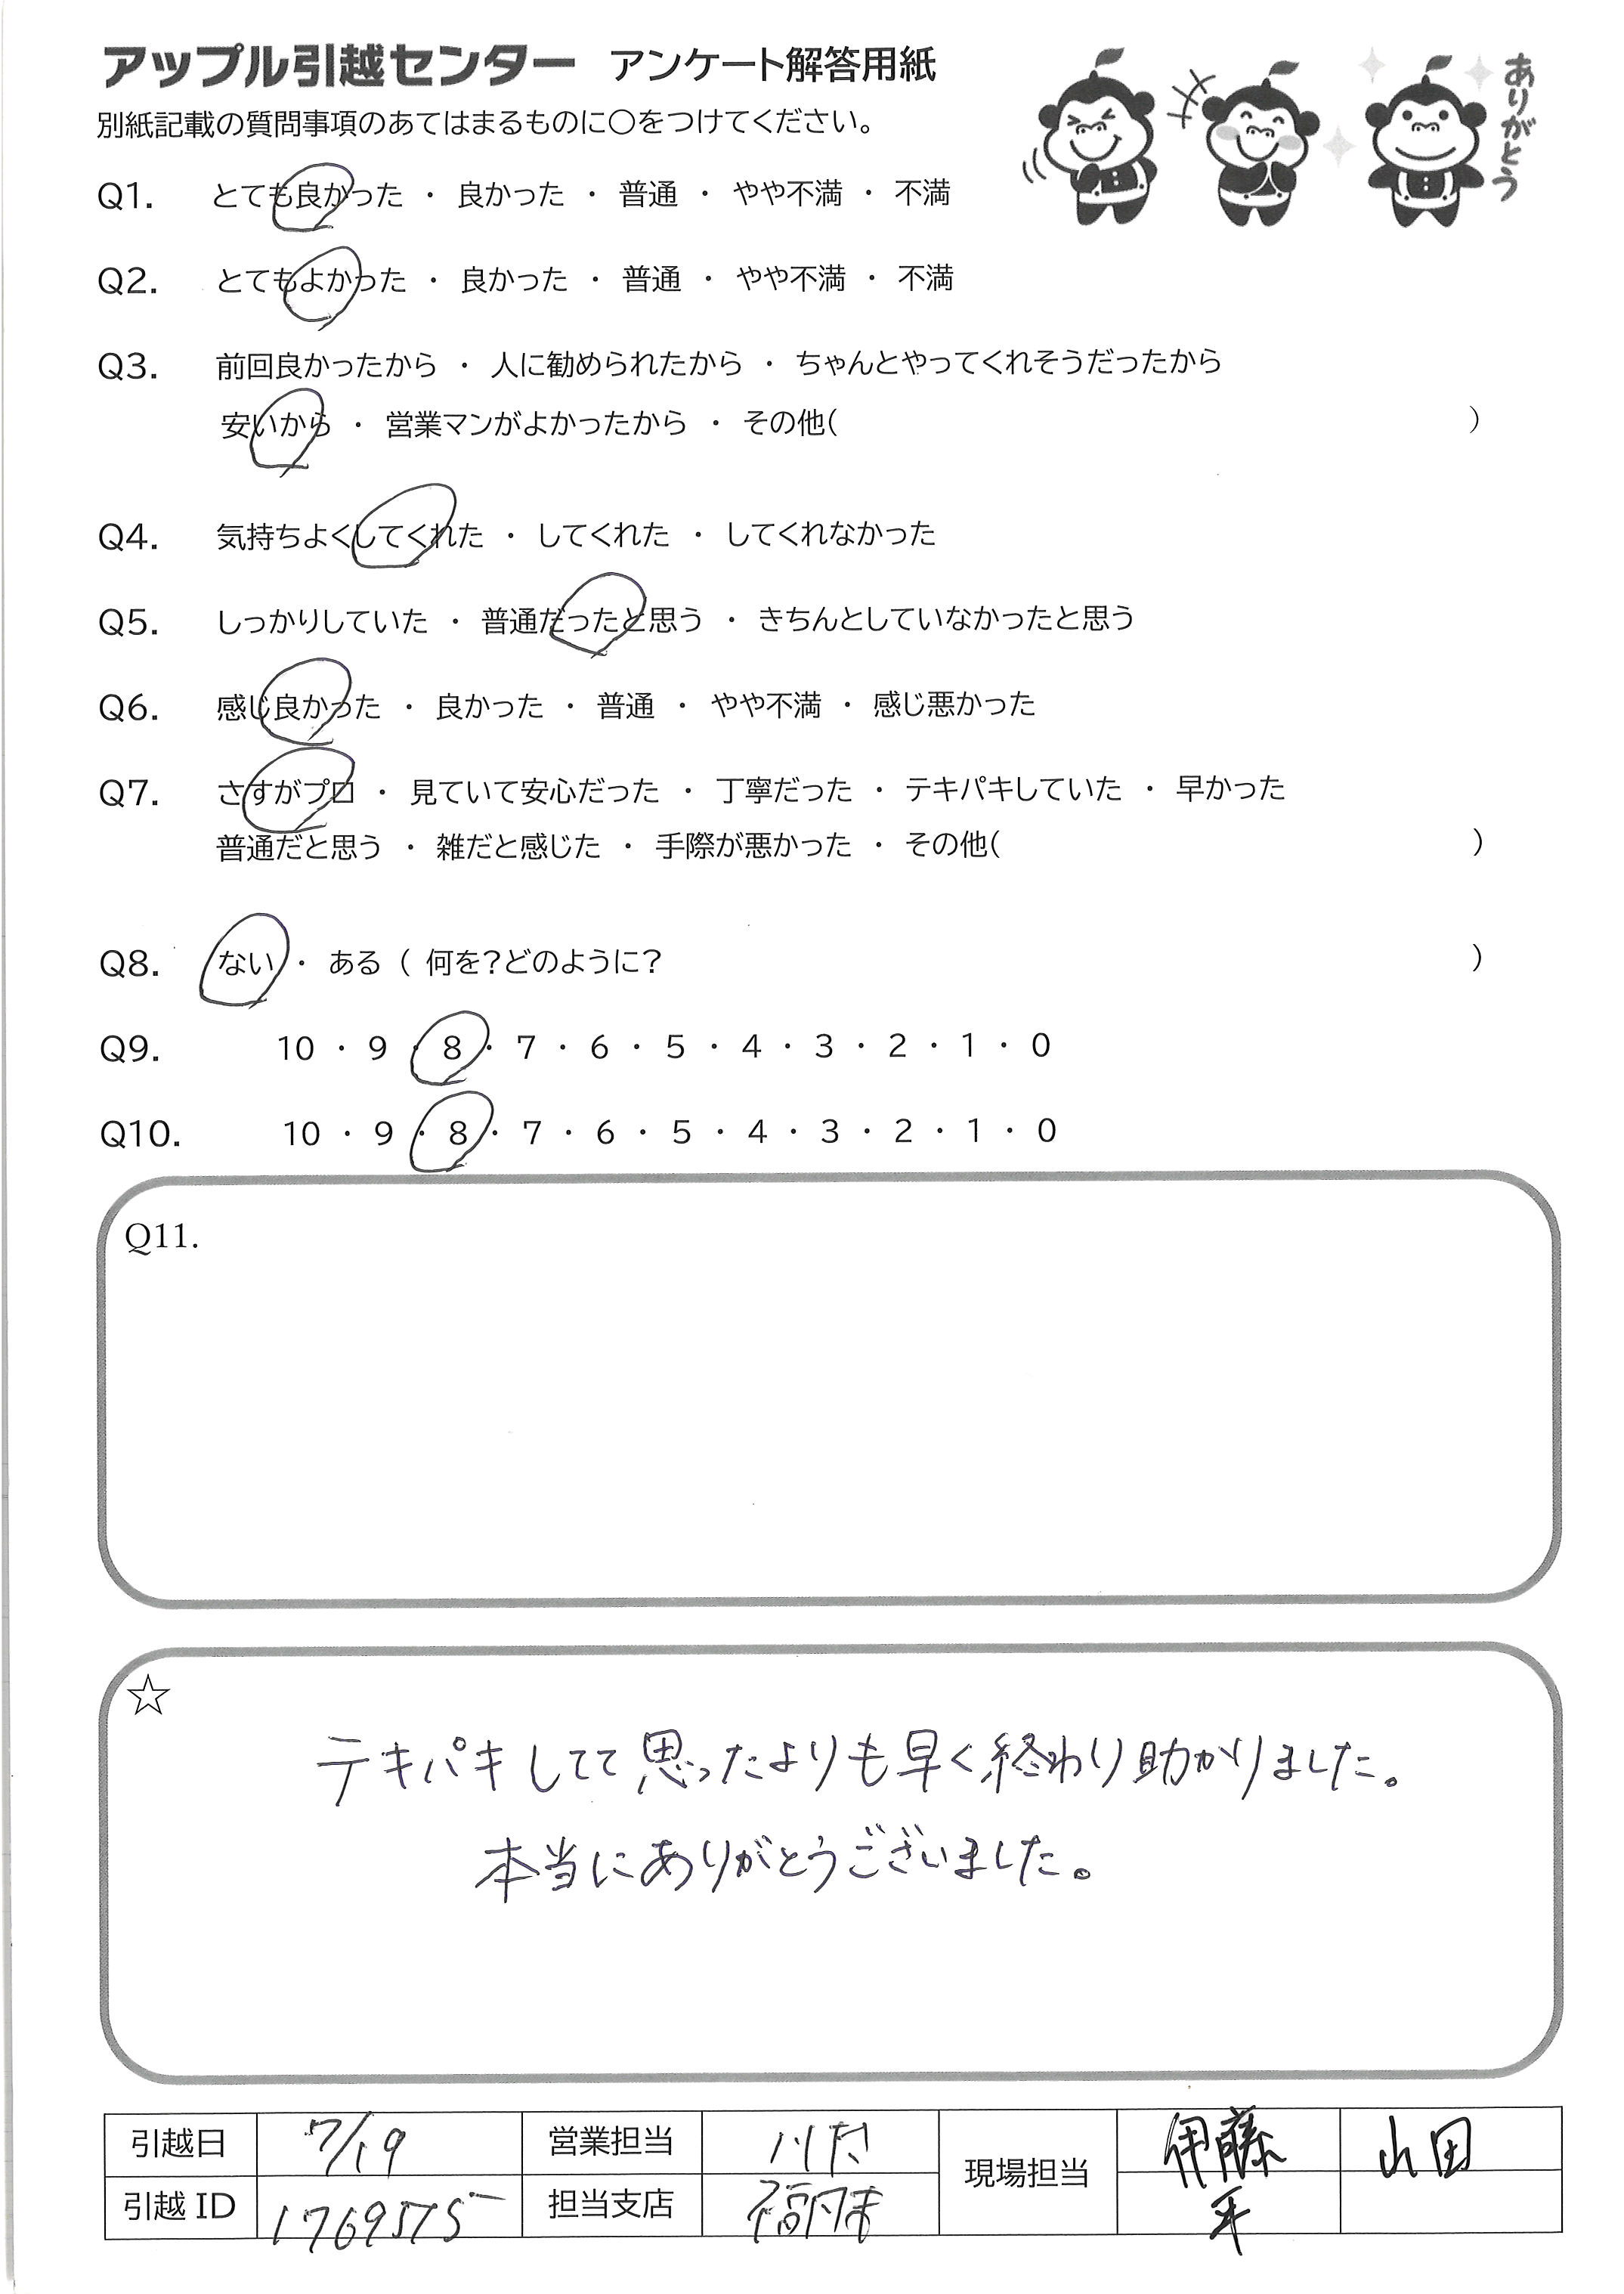 アップル引越センター アンケート解答用紙
別紙記載の質問事項のあてはまるものに○をつけてください。
ありがとう
Q1. とても良かった ・ 良かった ・ 普通 ・ やや不満 ・ 不満
Q2. とてもよかった ・ 良かった ・ 普通 ・ やや不満 ・ 不満
Q3. 前回良かったから ・ 人に勧められたから ・ ちゃんとやってくれそうだったから
安いから ・ 営業マンがよかったから ・ その他( )
Q4. 気持ちよくしてくれた ・ してくれた ・ してくれなかった
Q5. しっかりしていた ・ 普通だったと思う ・ きちんとしていなかったと思う
Q6. 感じ良かった ・ 良かった ・ 普通 ・ やや不満 ・ 感じ悪かった
Q7. さすがプロ ・ 見ていて安心だった ・ 丁寧だった ・ テキパキしていた ・ 早かった
普通だと思う ・ 雑だと感じた ・ 手際が悪かった ・ その他( )
Q8. ない ・ ある ( 何を?どのように? )
Q9. 10 ・ 9 ・ 8 ・ 7 ・ 6 ・ 5 ・ 4 ・ 3 ・ 2 ・ 1 ・ 0
Q10. 10 ・ 9 ・ 8 ・ 7 ・ 6 ・ 5 ・ 4 ・ 3 ・ 2 ・ 1 ・ 0
Q11.
☆
テキパキしてて思ったよりも早く終わり助かりました。
本当にありがとうございました。
引越日 7/19 営業担当 川村 現場担当 伊藤 山田
引越ID 1769515 担当支店 平